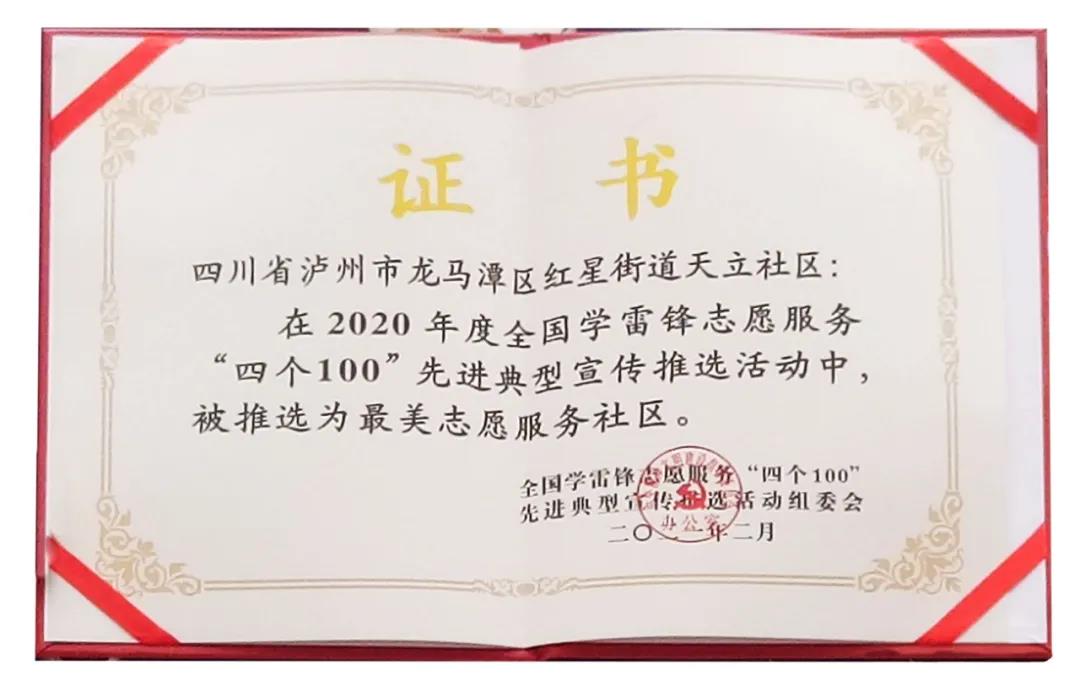 证书
四川省泸州市龙马潭区红星街道天立社区：
在2020年度全国学雷锋志愿服务
“四个100”先进典型宣传推选活动中，
被推选为最美志愿服务社区。
全国学雷锋志愿服务“四个100”
先进典型宣传推选活动组委会
二〇二一年二月
办公室